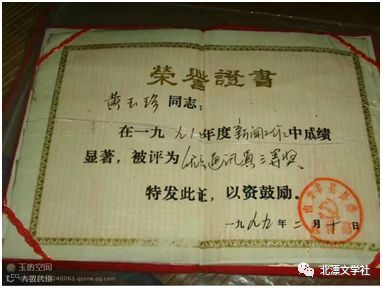 荣誉證書
黄玉珍 同志：
在一九九八年度新闻工作中成绩
显著，被评为优秀通讯员三等奖
特发此证，以资鼓励。
一九九九年二月十日
玉的空间
240061.qzone.qq.com
北漂文学社